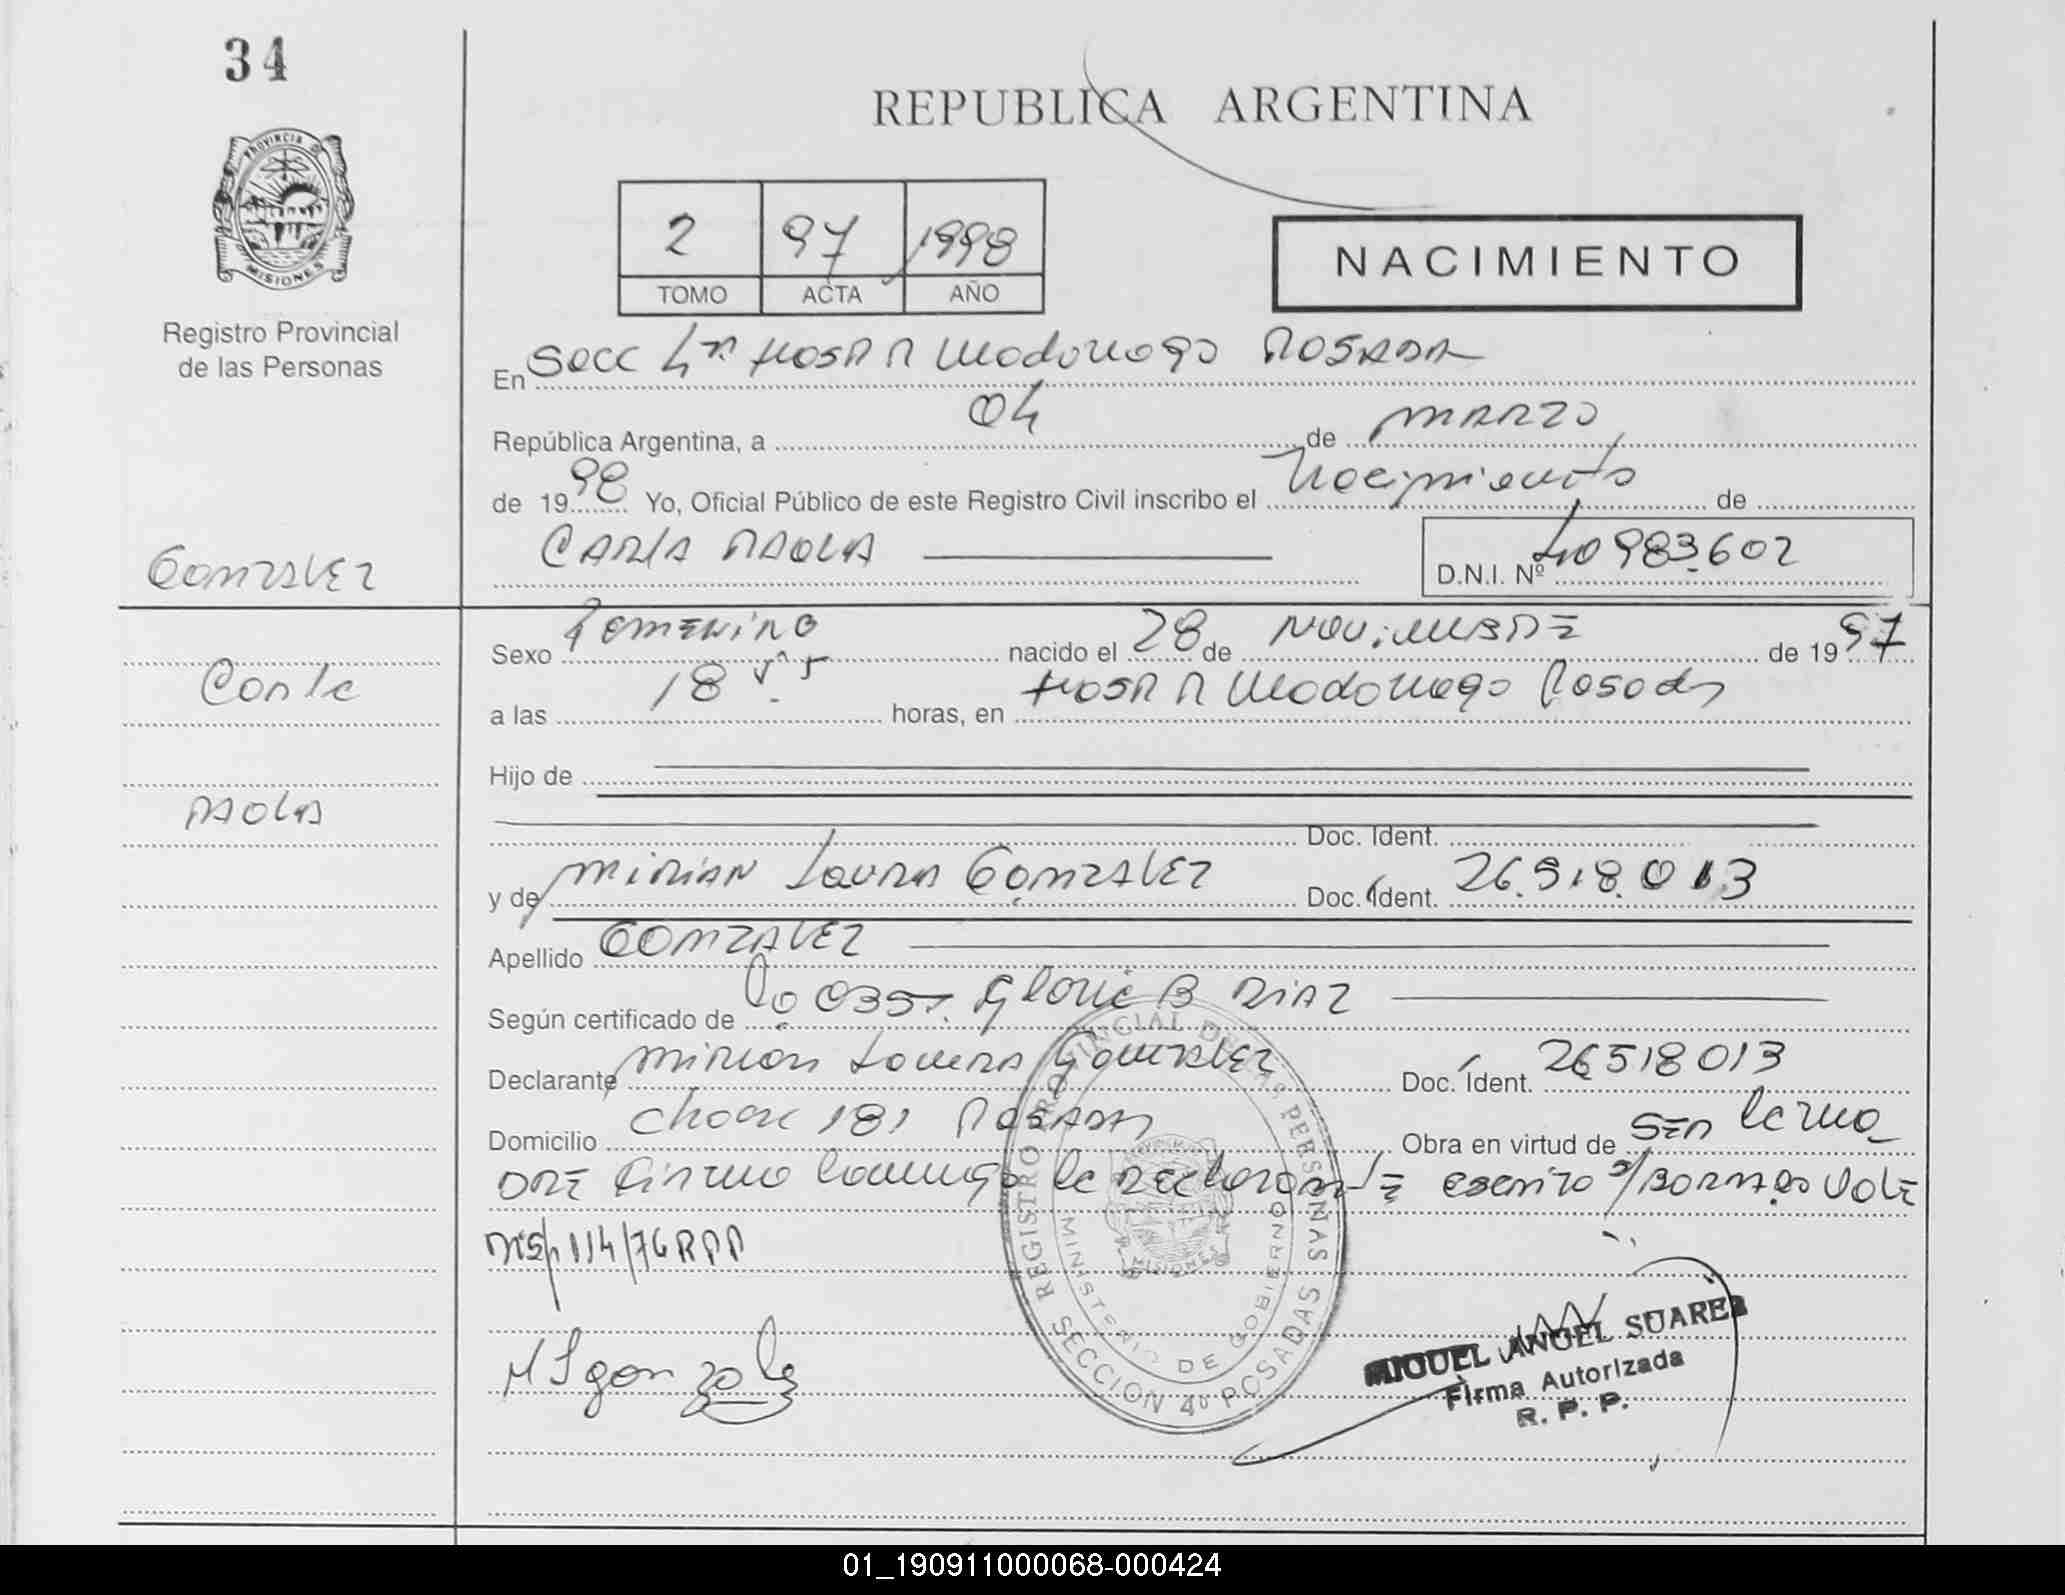 34
REPUBLICA ARGENTINA
PROVINCIA D
MISIONES
Registro Provincial
de las Personas
2 97 1998
TOMO ACTA AÑO
NACIMIENTO
En Secc 4ta Hosp R Madariaga Posadas
República Argentina, a 04 de MARZO
de 1998 Yo, Oficial Público de este Registro Civil inscribo el Nacimiento de
CARLA PAOLA
D.N.I. Nº 40983.602
GONZALEZ
Carla
PAOLA
Sexo Femenino nacido el 28 de NOVIEMBRE de 1997
a las 18 horas, en Hosp R Madariaga Posadas
Hijo de
Doc. Ident.
y de MIRIAN Laura GONZALEZ Doc. Ident. 26.518.013
Apellido GONZALEZ
Según certificado de la OBST. Gloria B DIAZ
Declarante Mirian Laura Gonzalez Doc. Ident. 26518013
Domicilio Chaco 181 POSADAS Obra en virtud de SER la misma
firma la DECLARANTE escrito s/BORRADO VALE
DISP 114/76 RPP
M L gonzalez
REGISTRO PROVINCIAL DE LAS PERSONAS
SECCION 4º POSADAS
MINISTERIO DE GOBIERNO
MISIONES
MIGUEL ANGEL SUAREZ
Firma Autorizada
R. P. P.
01_190911000068-000424